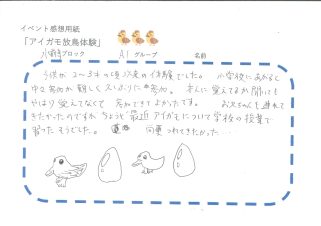 イベント感想用紙
「アイガモ放鳥体験」
ブロック A1 グループ 名前
子供が2〜3才の頃以来の体験でした。小学校にあがると
中々参加が難しく久しぶりに参加。本人に覚えてるか聞いても
やはり覚えてなくて参加できてよかったです。お兄ちゃんも連れて
きたかったのですが、ちょうど最近アイガモについて学校の授業で
習ったそうでした。つれてきたかった…